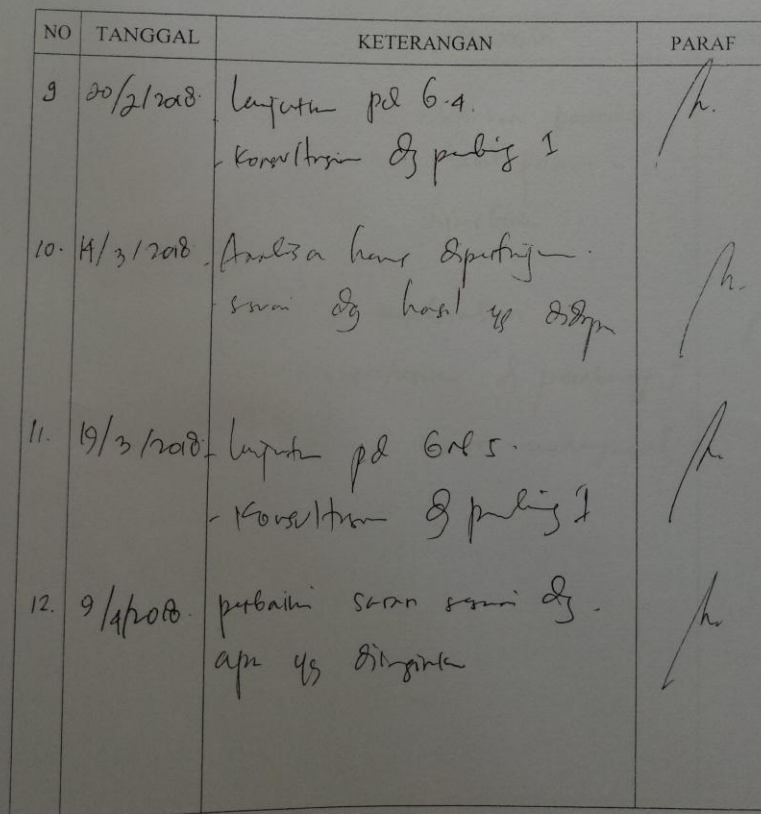 NO TANGGAL KETERANGAN PARAF
9 20/2/2018. Lanjutkan pd 6.4.
- Konsultasikan dg pembimbing I
10. 14/3/2018 - Analisa harus dipertajam.
- sesuai dg hasil yg
11. 19/3/2018 - Lanjutkan pd
- Konsultasikan dg pembimbing I
12. 9/4/2018. perbaiki saran sesuai dg.
apa yg diinginkan